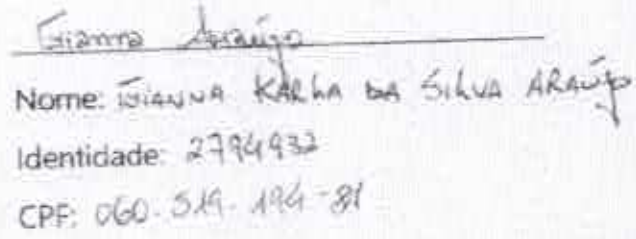 Gianna Araújo
Nome: GIANNA KARLA DA SILVA ARAÚJO
Identidade: 2794932
CPF: 060.519.194-81